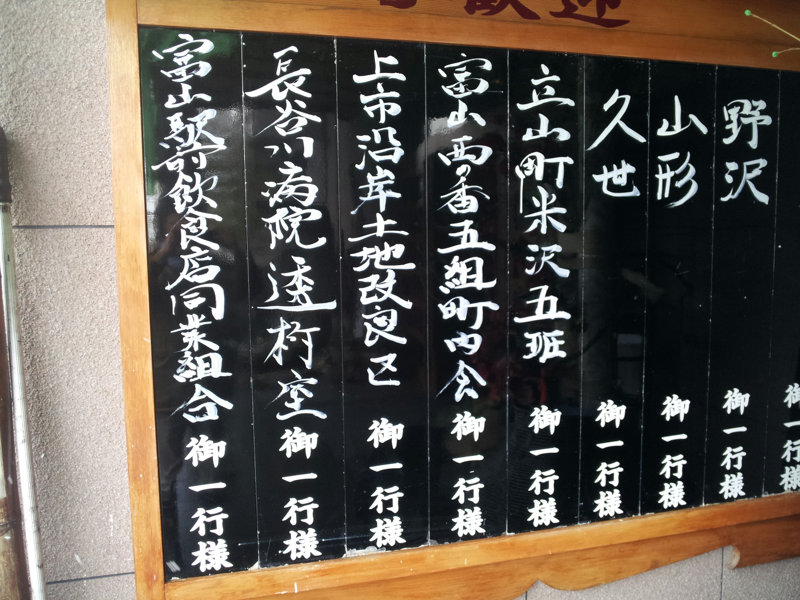 歓迎
御一行様
野沢 御一行様
山形 御一行様
久世 御一行様
立山町米沢五班 御一行様
富山西の番五組町内会 御一行様
上市沿岸土地改良区 御一行様
長谷川病院透析室 御一行様
富山駅前飲食店同業組合 御一行様